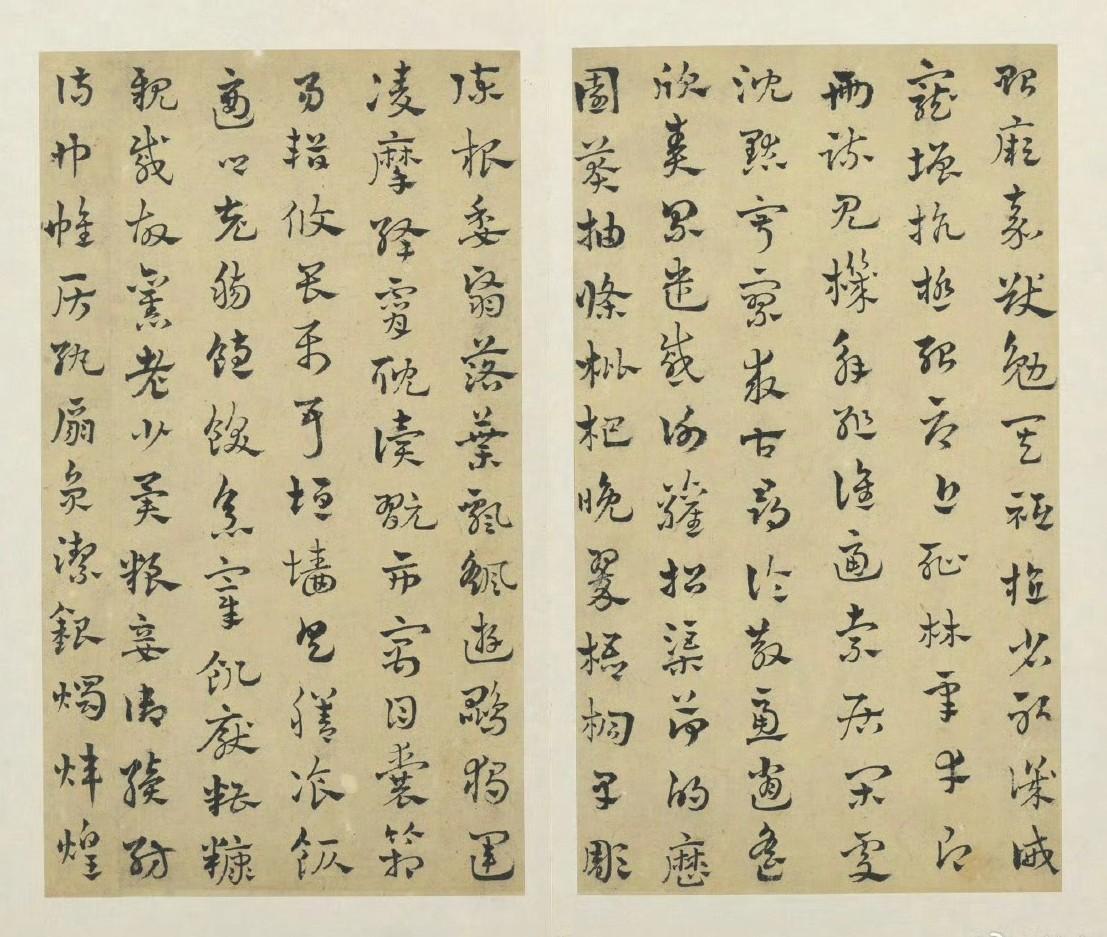 貽厥嘉猷勉其祗植省躬譏誡
寵增抗極殆辱近恥林皋幸即
兩疏見機解組誰逼索居閑處
沈默寂寥求古尋論散慮逍遙
欣奏累遣慼謝歡招渠荷的歷
園莽抽條枇杷晚翠梧桐早彫
陳根委翳落葉飄颻遊鵾獨運
凌摩絳霄耽讀翫市寓目囊箱
易輶攸畏屬耳垣墻具膳飡飯
適口充腸飽飫烹宰飢厭糟糠
親戚故舊老少異粮妾御績紡
侍巾帷房紈扇員潔銀燭煒煌